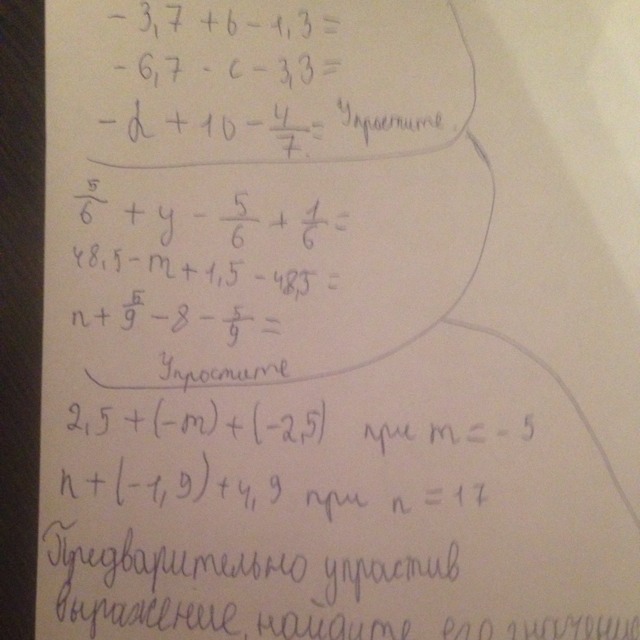 -3,7 + b - 1,3 =
-6,7 - c - 3,3 =
-2 + 10 - 4/7 = Упростите
5/6 + y - 5/6 + 1/6 =
48,5 - m + 1,5 - 48,5 =
n + 5/9 - 8 - 5/9 =
Упростите
2,5 + (-m) + (-2,5) при m = -5
n + (-1,9) + 4,9 при n = 17
Предварительно упростив
выражение, найдите его значение